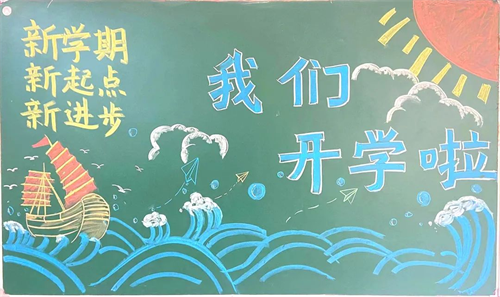 新学期
新起点
新进步
我们
开学啦